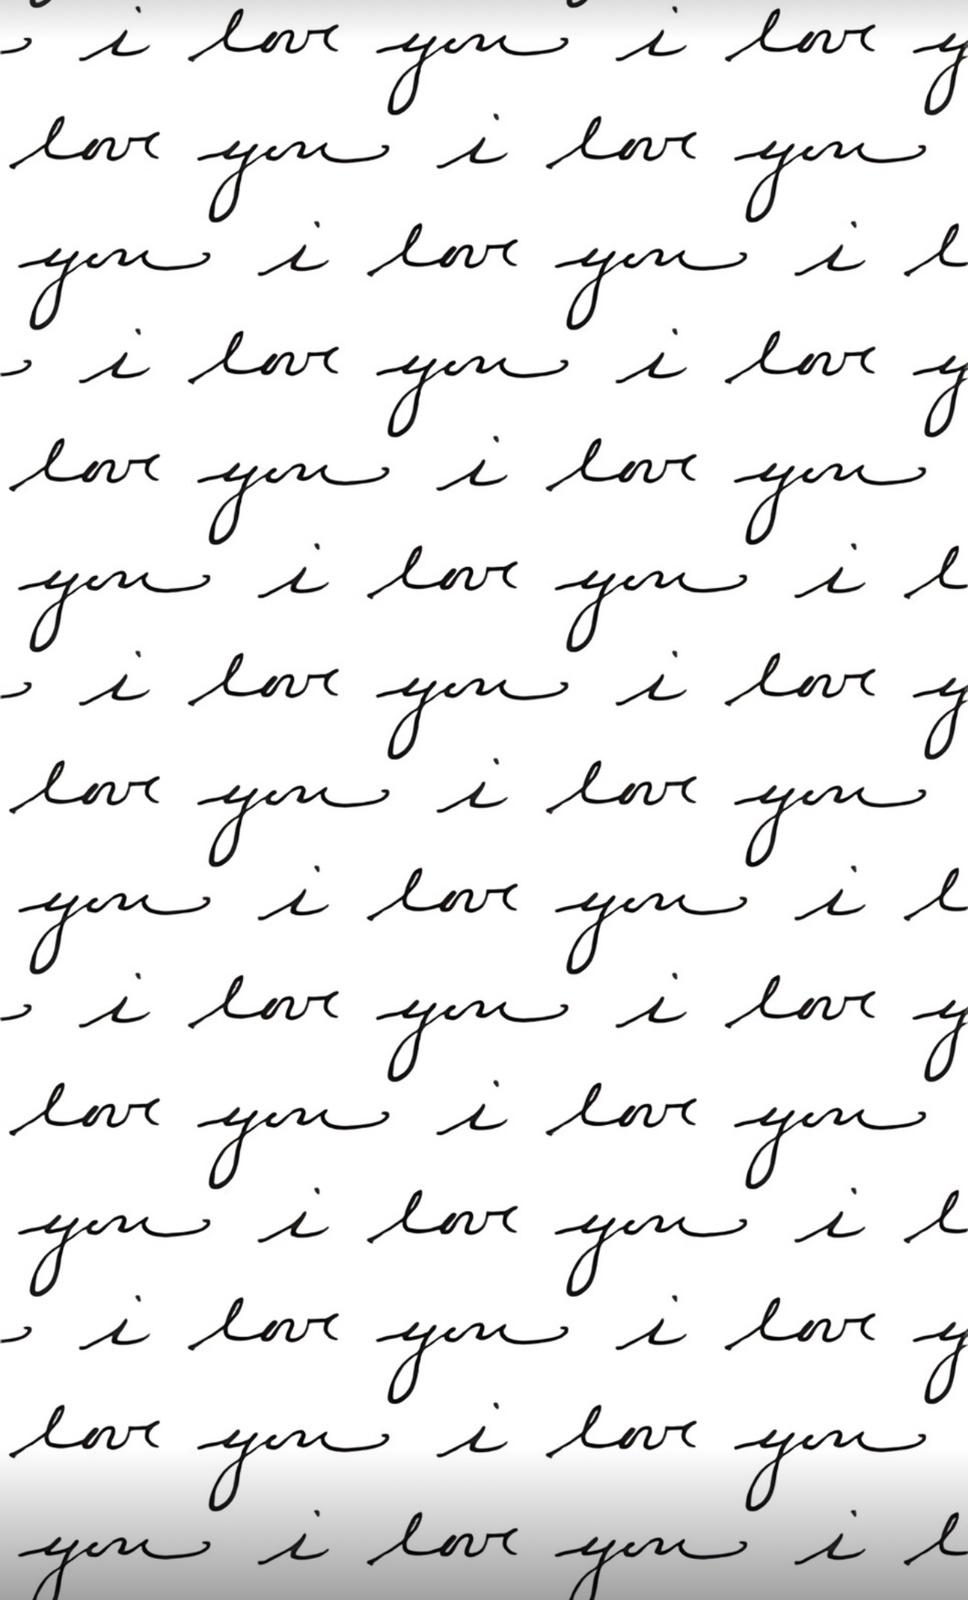 i love you i love y
love you i love you
you i love you i l
i love you i love y
love you i love you
you i love you i l
i love you i love y
love you i love you
you i love you i l
i love you i love y
love you i love you
you i love you i l
i love you i love y
love you i love you
you i love you i l